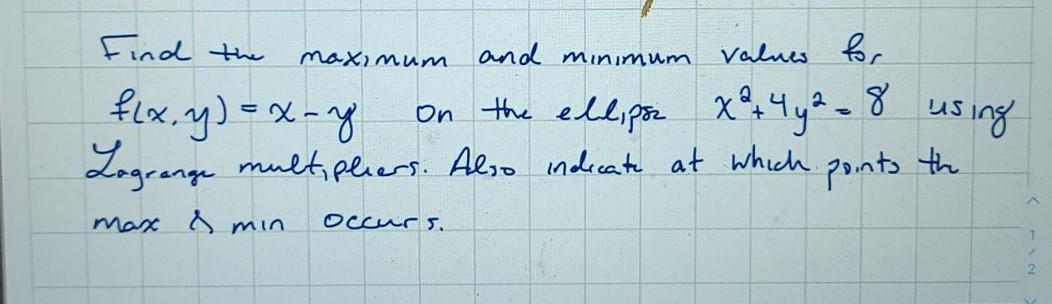 Find the maximum and minimum values for
f(x,y) = x - y on the ellipse x²+4y² = 8 using
Lagrange multipliers. Also indicate at which points the
max & min occurs.
1
/
2